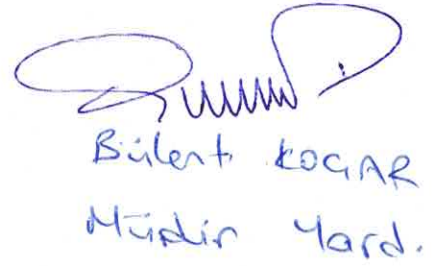 Bülent KOGAR
Müdür Yard.